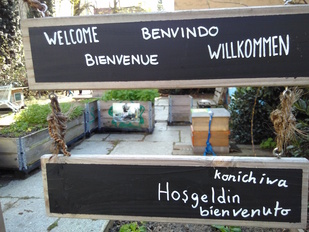 WELCOME BENVINDO
BIENVENUE WILLKOMMEN
konichiwa
Hosgeldin
bienvenuto